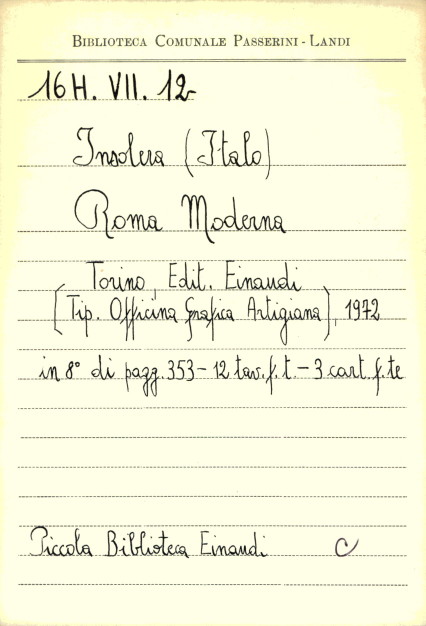 BIBLIOTECA COMUNALE PASSERINI - LANDI
16 H. VII. 12
Insolera (Italo)
Roma Moderna
Torino, Edit. Einaudi
(Tip. Officina Grafica Artigiana), 1972
in 8° di pagg. 353 - 12 tav. f. t. - 3 cart. f. te
Piccola Biblioteca Einaudi C